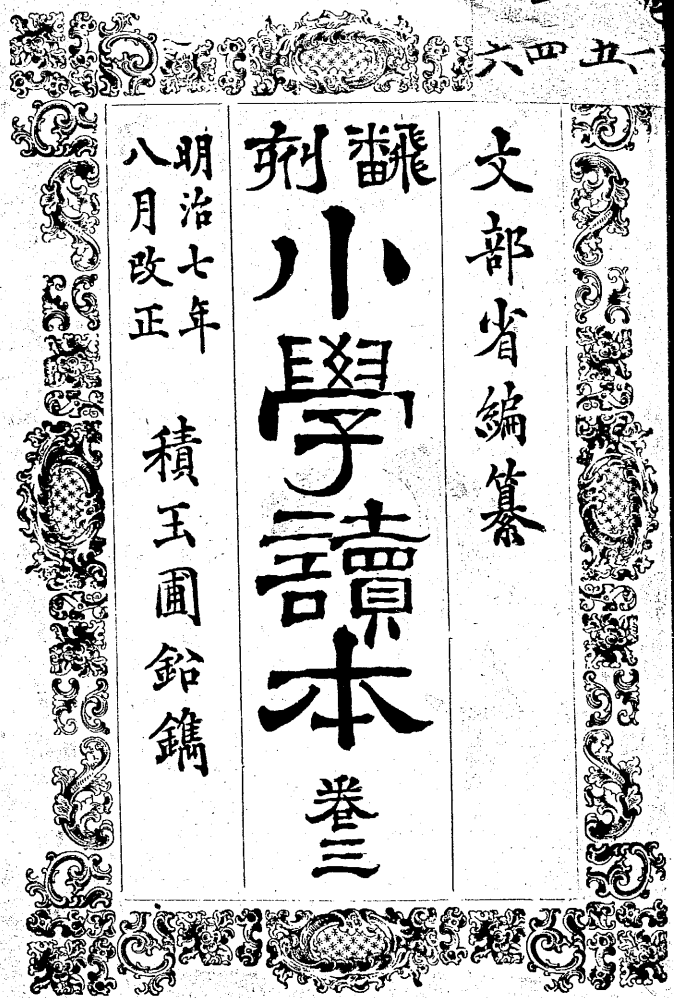 一五四六
文部省編纂
飜刻
小學讀本
卷三
明治七年
八月改正
積玉圃鉛鐫